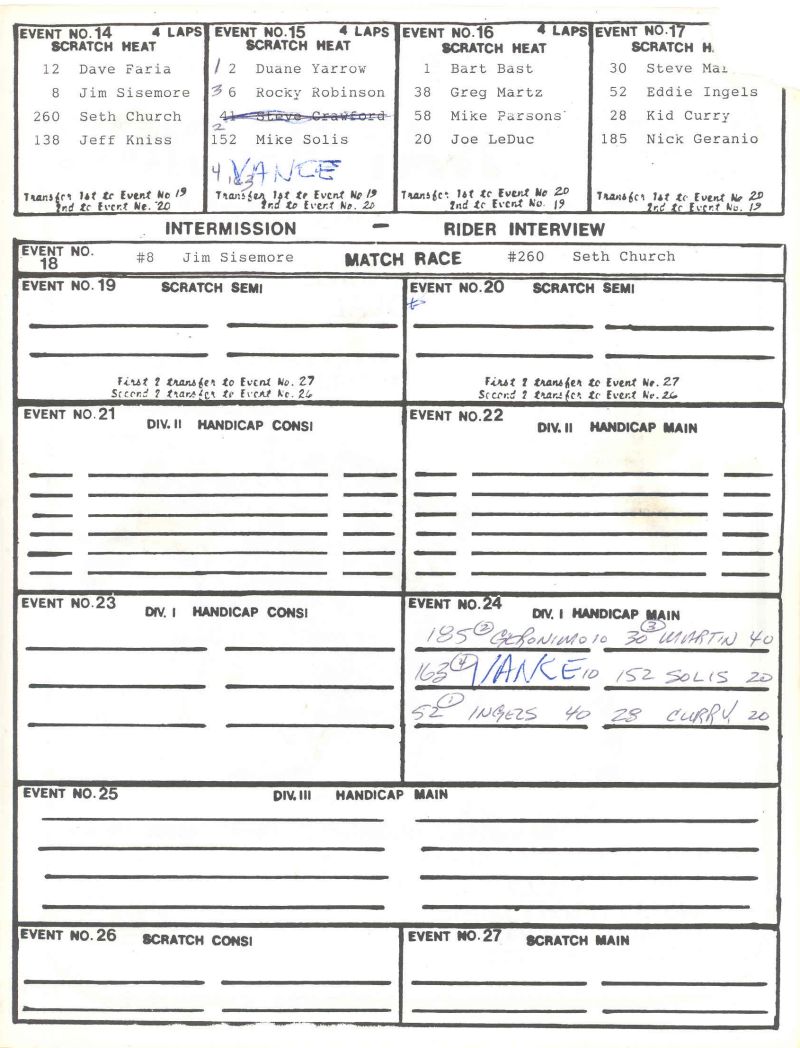 EVENT NO. 14 4 LAPS
SCRATCH HEAT
12 Dave Faria
8 Jim Sisemore
260 Seth Church
138 Jeff Kniss
Transfer 1st to Event No 19
2nd to Event No. 20
EVENT NO. 15 4 LAPS
SCRATCH HEAT
1 2 Duane Yarrow
3 6 Rocky Robinson
41 Steve Crawford
2
152 Mike Solis
4 163 VANCE
Transfer 1st to Event No 19
2nd to Event No. 20
EVENT NO. 16 4 LAPS
SCRATCH HEAT
1 Bart Bast
38 Greg Martz
58 Mike Parsons
20 Joe LeDuc
Transfer 1st to Event No 20
2nd to Event No. 19
EVENT NO. 17
SCRATCH H
30 Steve Ma
52 Eddie Ingels
28 Kid Curry
185 Nick Geranio
Transfer 1st to Event No 20
2nd to Event No. 19
INTERMISSION — RIDER INTERVIEW
EVENT NO. 18 #8 Jim Sisemore MATCH RACE #260 Seth Church
EVENT NO. 19 SCRATCH SEMI
First 2 transfer to Event No. 27
Second 2 transfer to Event No. 26
EVENT NO. 20 SCRATCH SEMI
First 2 transfer to Event No. 27
Second 2 transfer to Event No. 26
EVENT NO. 21
DIV. II HANDICAP CONSI
EVENT NO. 22
DIV. II HANDICAP MAIN
EVENT NO. 23
DIV. I HANDICAP CONSI
EVENT NO. 24
DIV. I HANDICAP MAIN
185 2 GERONIMO 10 30 3 MARTIN 40
163 4 VANCE 10 152 SOLIS 20
52 1 INGELS 40 28 CURRY 20
EVENT NO. 25 DIV. III HANDICAP MAIN
EVENT NO. 26 SCRATCH CONSI
EVENT NO. 27 SCRATCH MAIN